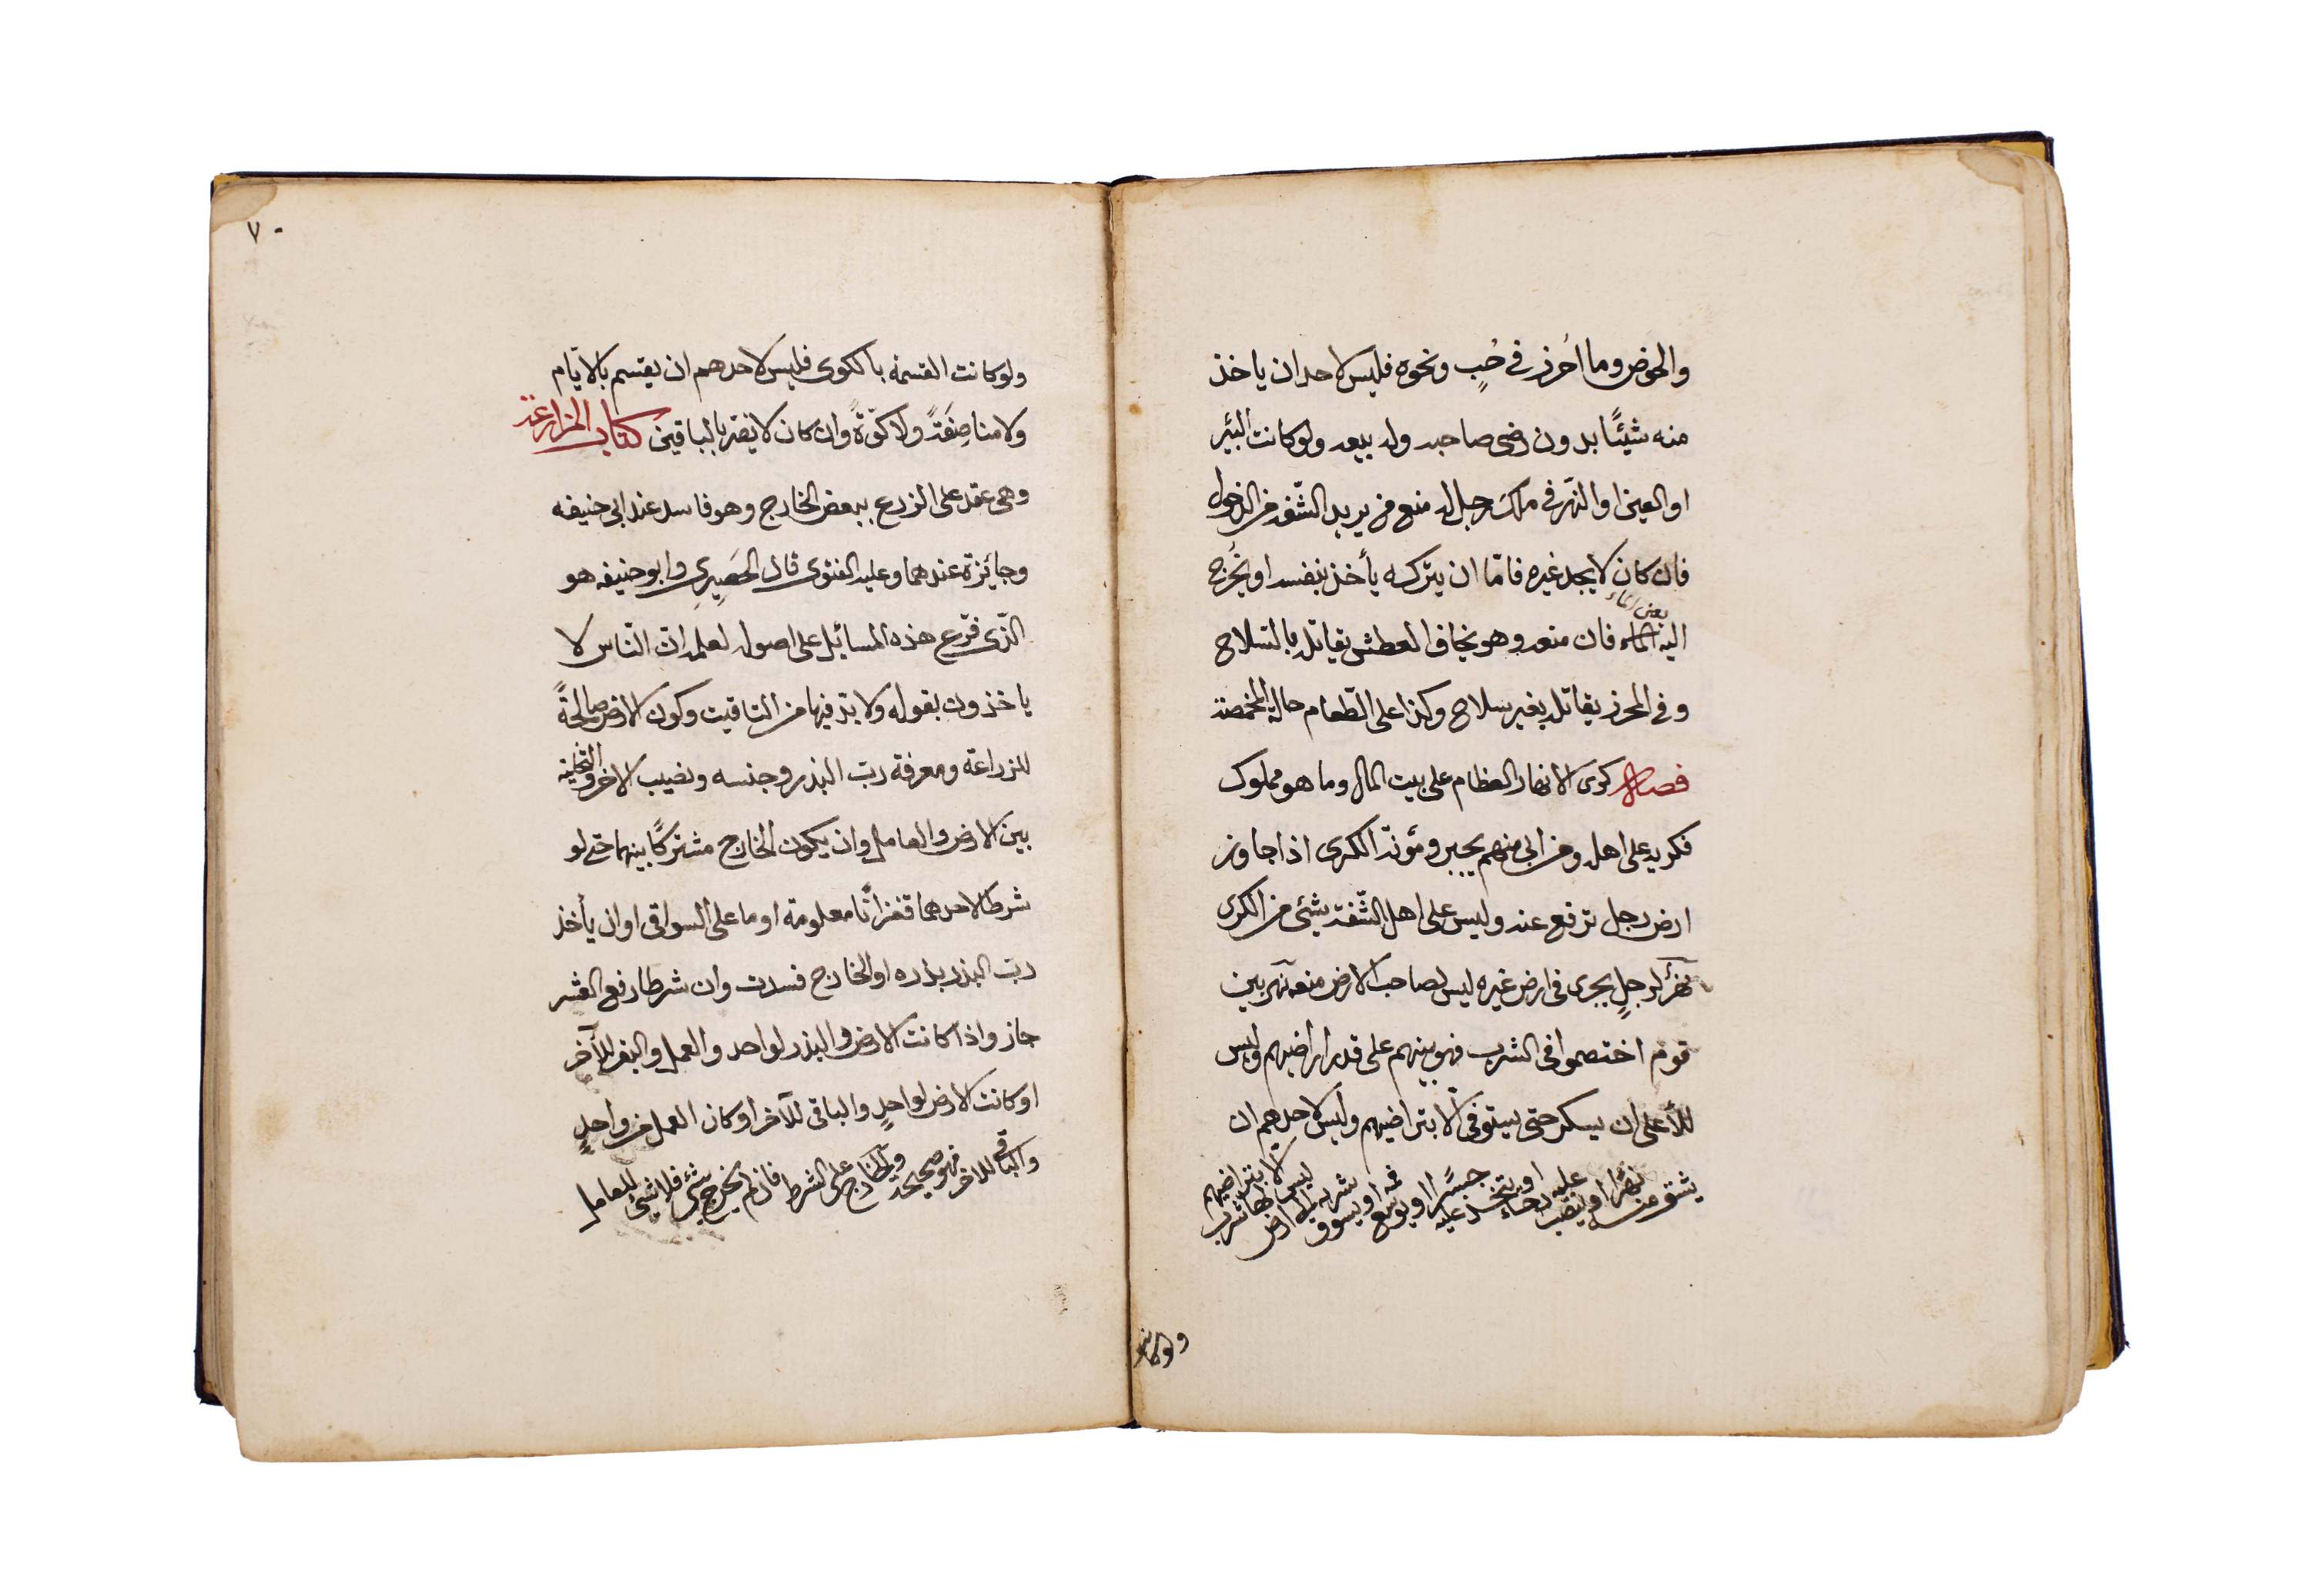 والحوض وما احرز في حُبٍ ونحوه فليس لاحد ان ياخذ
منه شيئًا بدون رضى صاحبه وله بيعه ولو كانت البئر
او العين او النهر في ملك رجل له منع من يريد الشّفة من الدخول
فان كان لا يجد غيره فامّا ان يتركه يأخذ بنفسه او يُخرج
يعنى الماء
اليه الماء فان منعه وهو يخاف العطش يقاتله بالسلاح
وفي المحرز يقاتله بغير سلاح وكذا على الطّعام حال المخمصة
فصل كرى الانهار العظام على بيت المال وما هو مملوك
فكريه على اهله ومن ابى منهم يجبر ومؤنة الكرى اذا جاوز
ارض رجل ترفع عنه وليس على اهل الشّفة شيئ من الكرى
نهرٌ لرجلٍ يجرى في ارض غيره ليس لصاحب الارض منعه نهر بين
قوم اختصموا في الشرب فهو بينهم على قدر اراضيهم وليس
للأعلى ان يسكر حتى يستوفى الّا بتراضيهم وليس لاحدهم ان
يشق منه نهرًا او ينصب عليه رحاء او يتخذ عليه جسرًا او يوسّع فمه او يسوق شربه الى ارض ليس لها شرب الّا بتراضيهم
ولو كانت
٧٠
ولو كانت القسمة بالكوى فليس لاحدهم ان يقسم بالايّام
ولا مناصفةً ولا كوّةً وان كان لا يضرّ بالباقين كتاب المزارعة
وهي عقد على الزرع ببعض الخارج وهو فاسد عند ابي حنيفه
وجائزة عندهما وعليه الفتوى قال الحَصِيرى وابو حنيفه هو
الّذى فرّع هذه المسائل على اصوله لعلمه انّ النّاس لا
ياخذون بقوله ولا بدّ فيها من التاقيت وكون الارض صالحةً
للزراعة ومعرفة ربّ البذر وجنسه ونصيب الاخر والتخلية
بين الارض والعامل وان يكون الخارج مشتركًا بينهما حتى لو
شرط لاحدهما قفزانًا معلومة او ما على السواقى او ان يأخذ
ربّ البذر بذره او الخارج فسدت وان شرطا رفع العشر
جاز واذا كانت الارض والبذر لواحد والعمل والبقر للآخر
او كانت الارض لواحدٍ والباقى للآخر او كان العمل من واحدٍ
والباقى للاخر فهو صحيحة والخارج على الشرط فان لم يخرج شئ فلا شئ للعامل